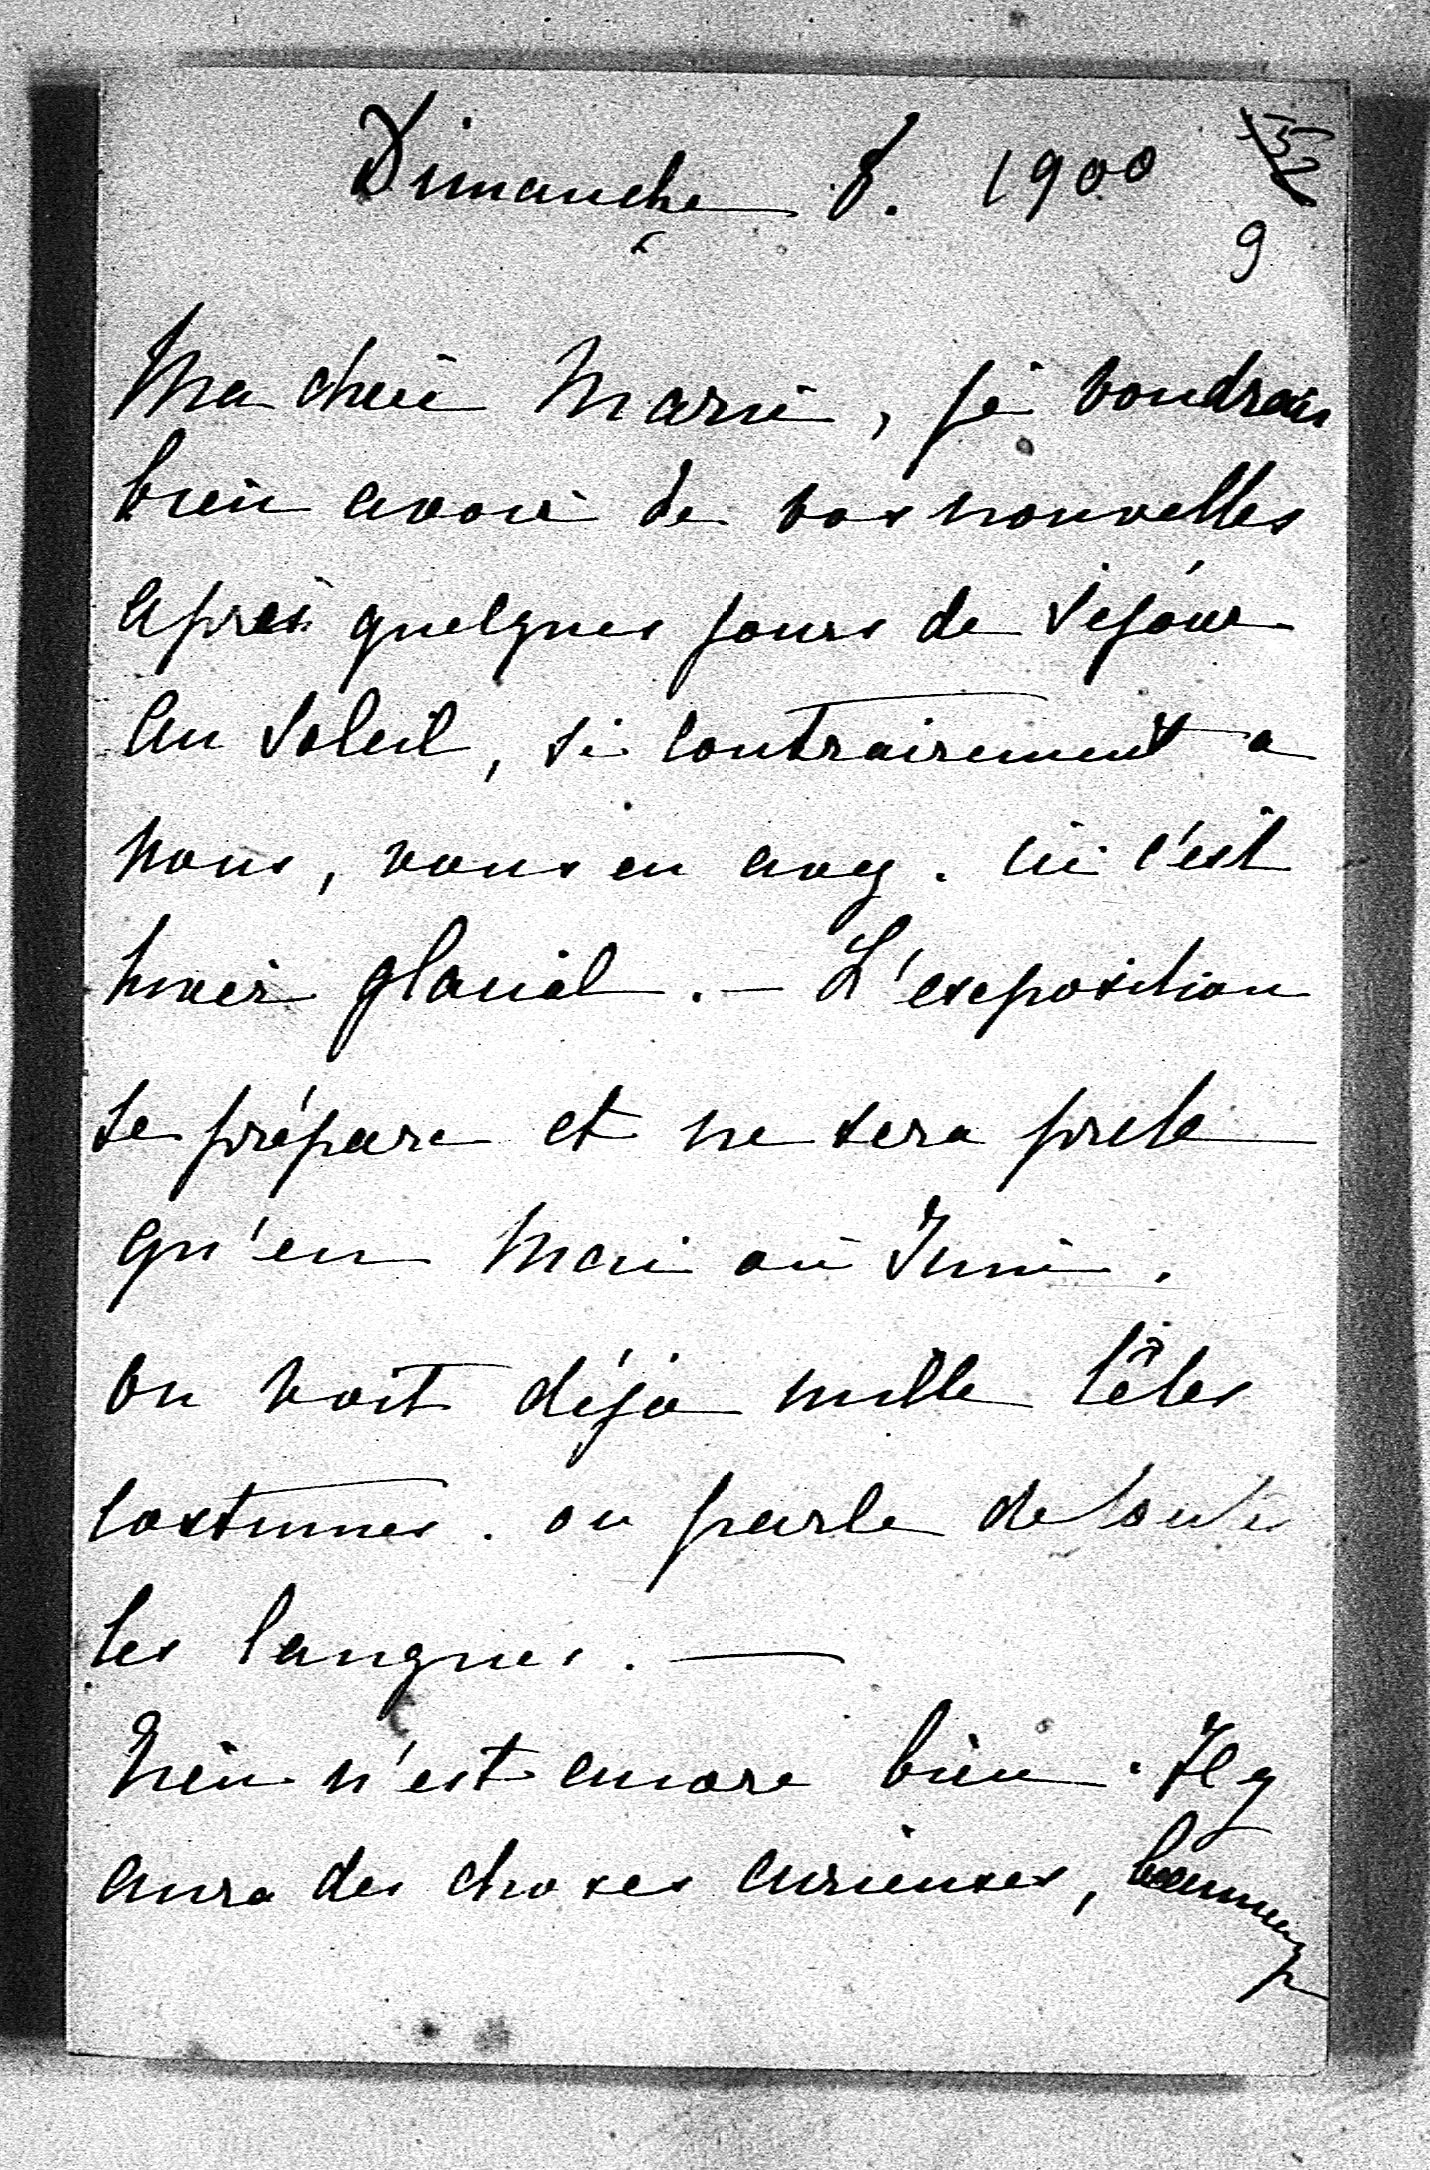 Dimanche 8. 1900 152
9
Ma chère Marie, je voudrais
bien avoir de vos nouvelles
après quelques jours de séjour
au soleil, si contrairement a
nous, vous en avez. ici c'est
hiver glacial. — L'exposition
se prépare et ne sera prete
qu'en Mai ou Juin.
on voit déja mille têtes
costumes. on parle de toutes
les langues. —
Rien n'est encore bien. Il y
aura des choses curieuses, beaucoup